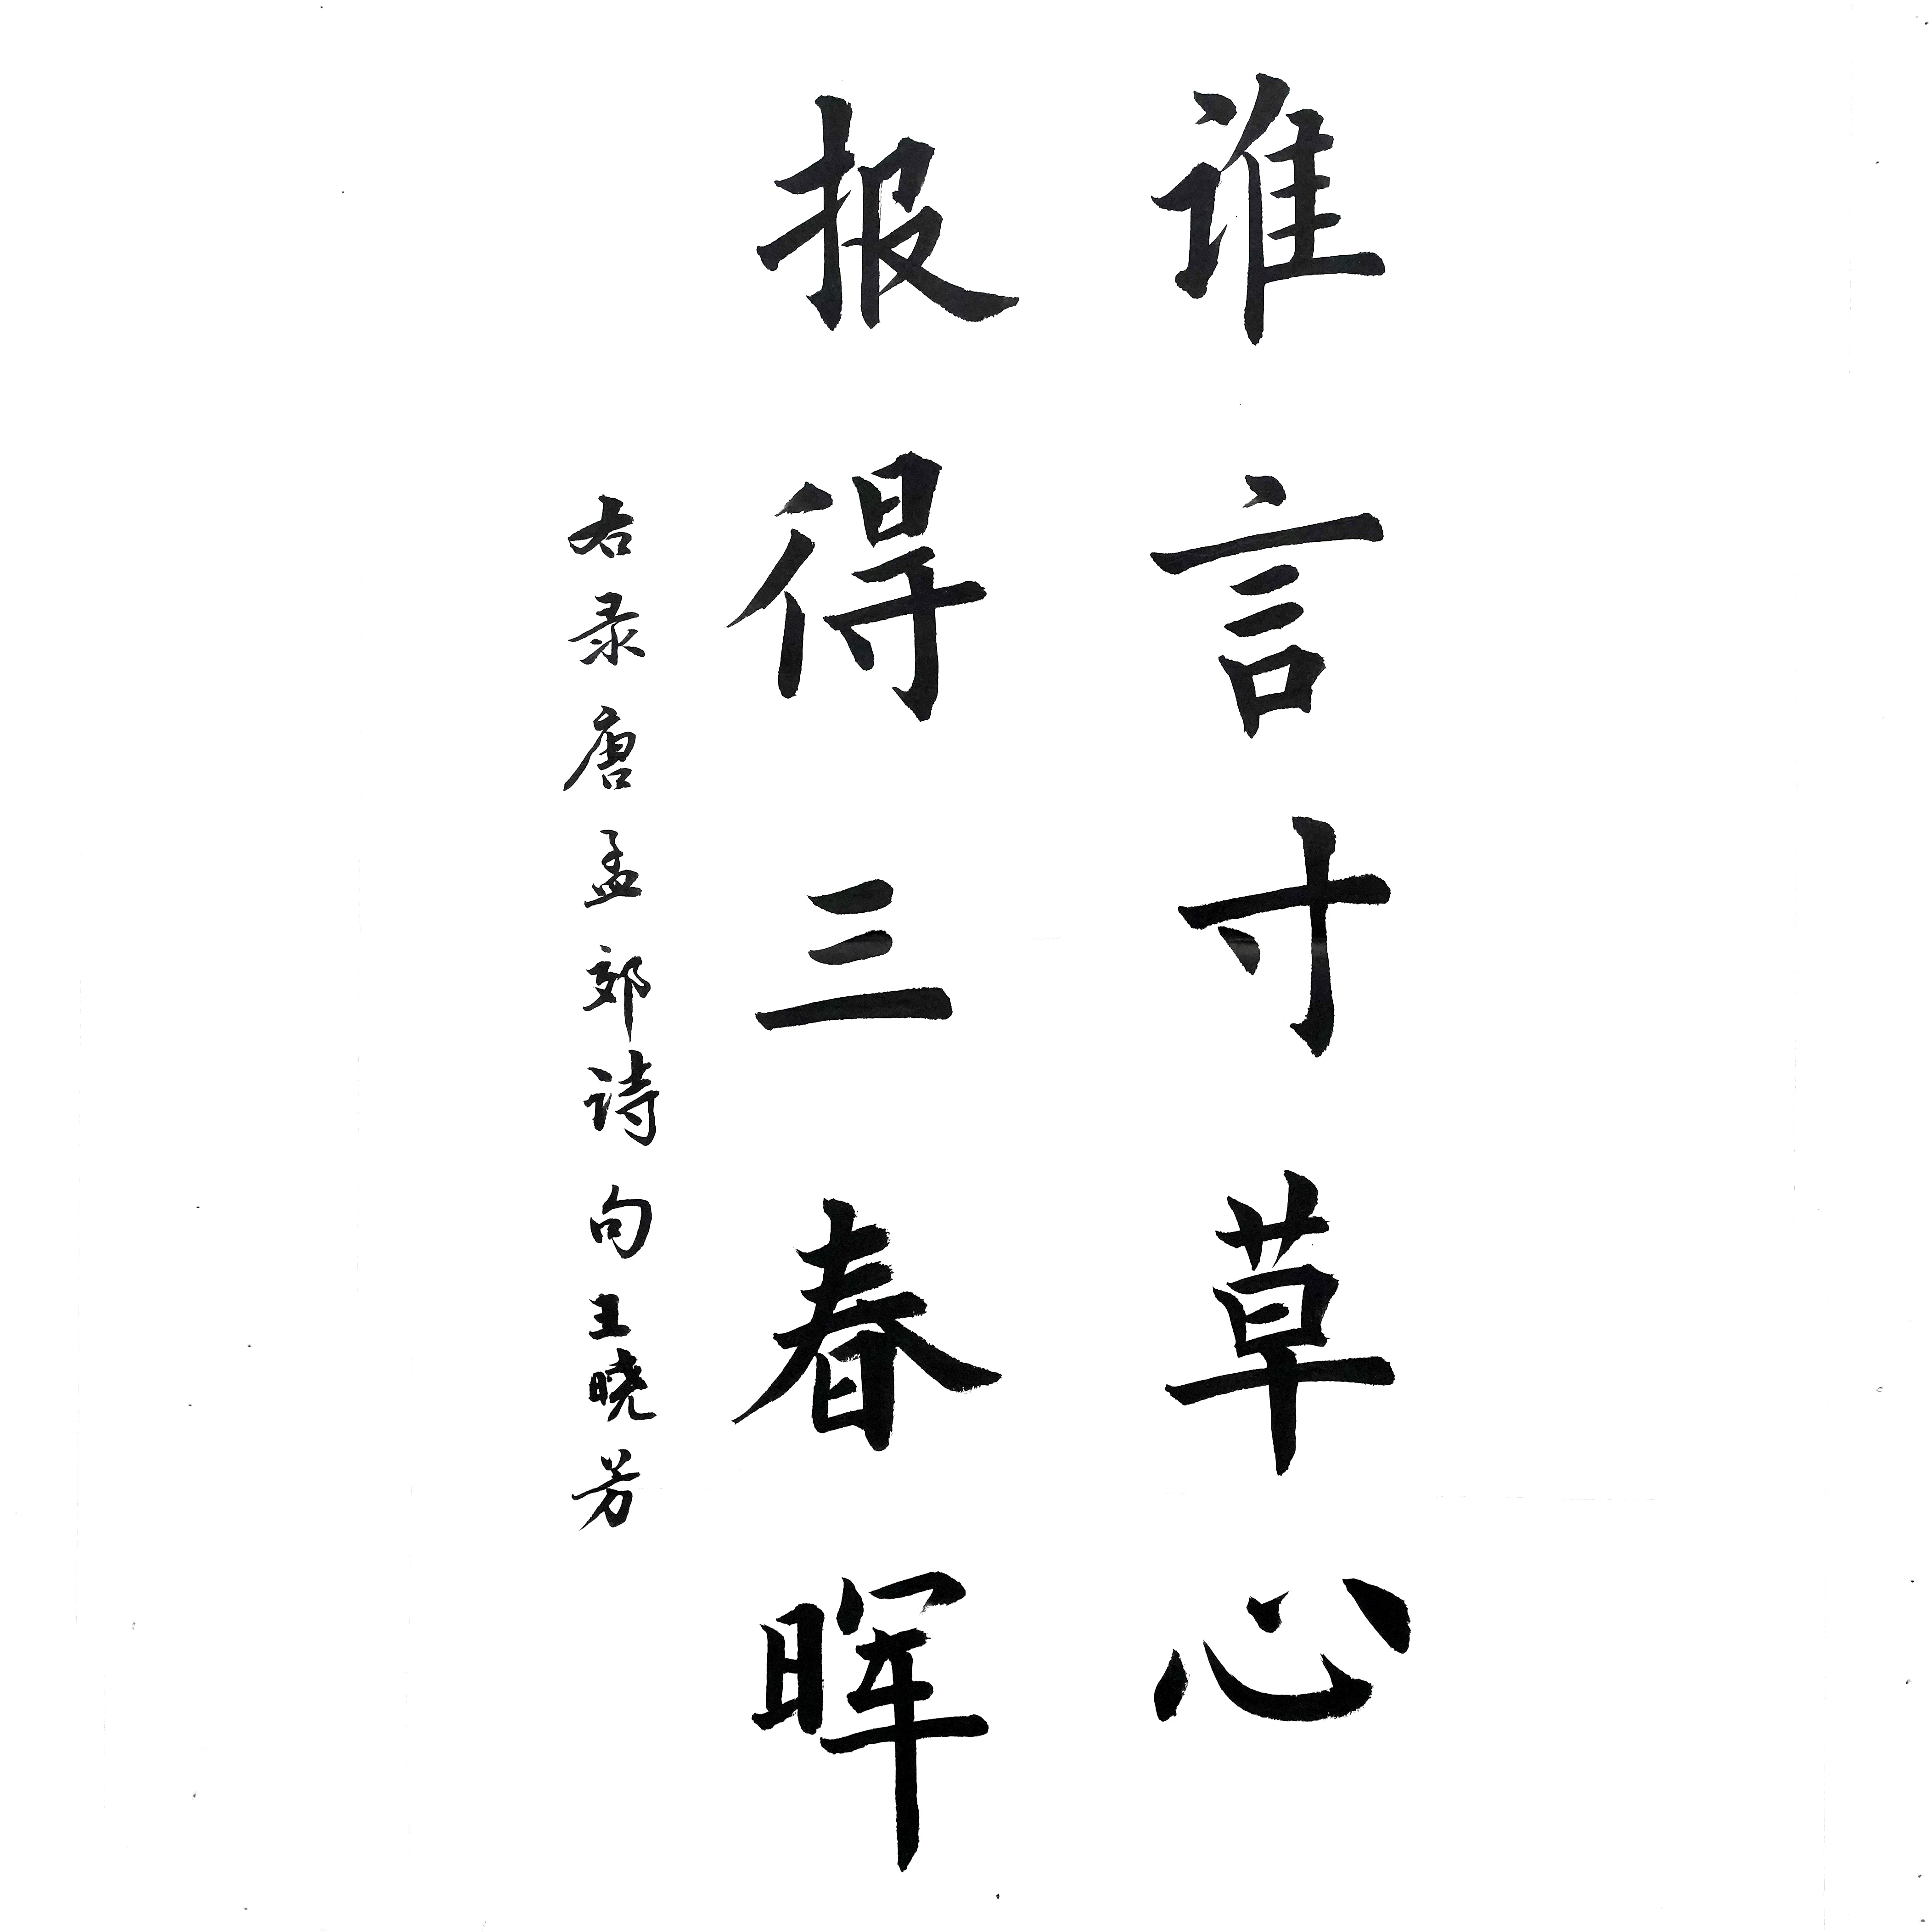 谁言寸草心
报得三春晖
右录唐孟郊诗句王晓芳